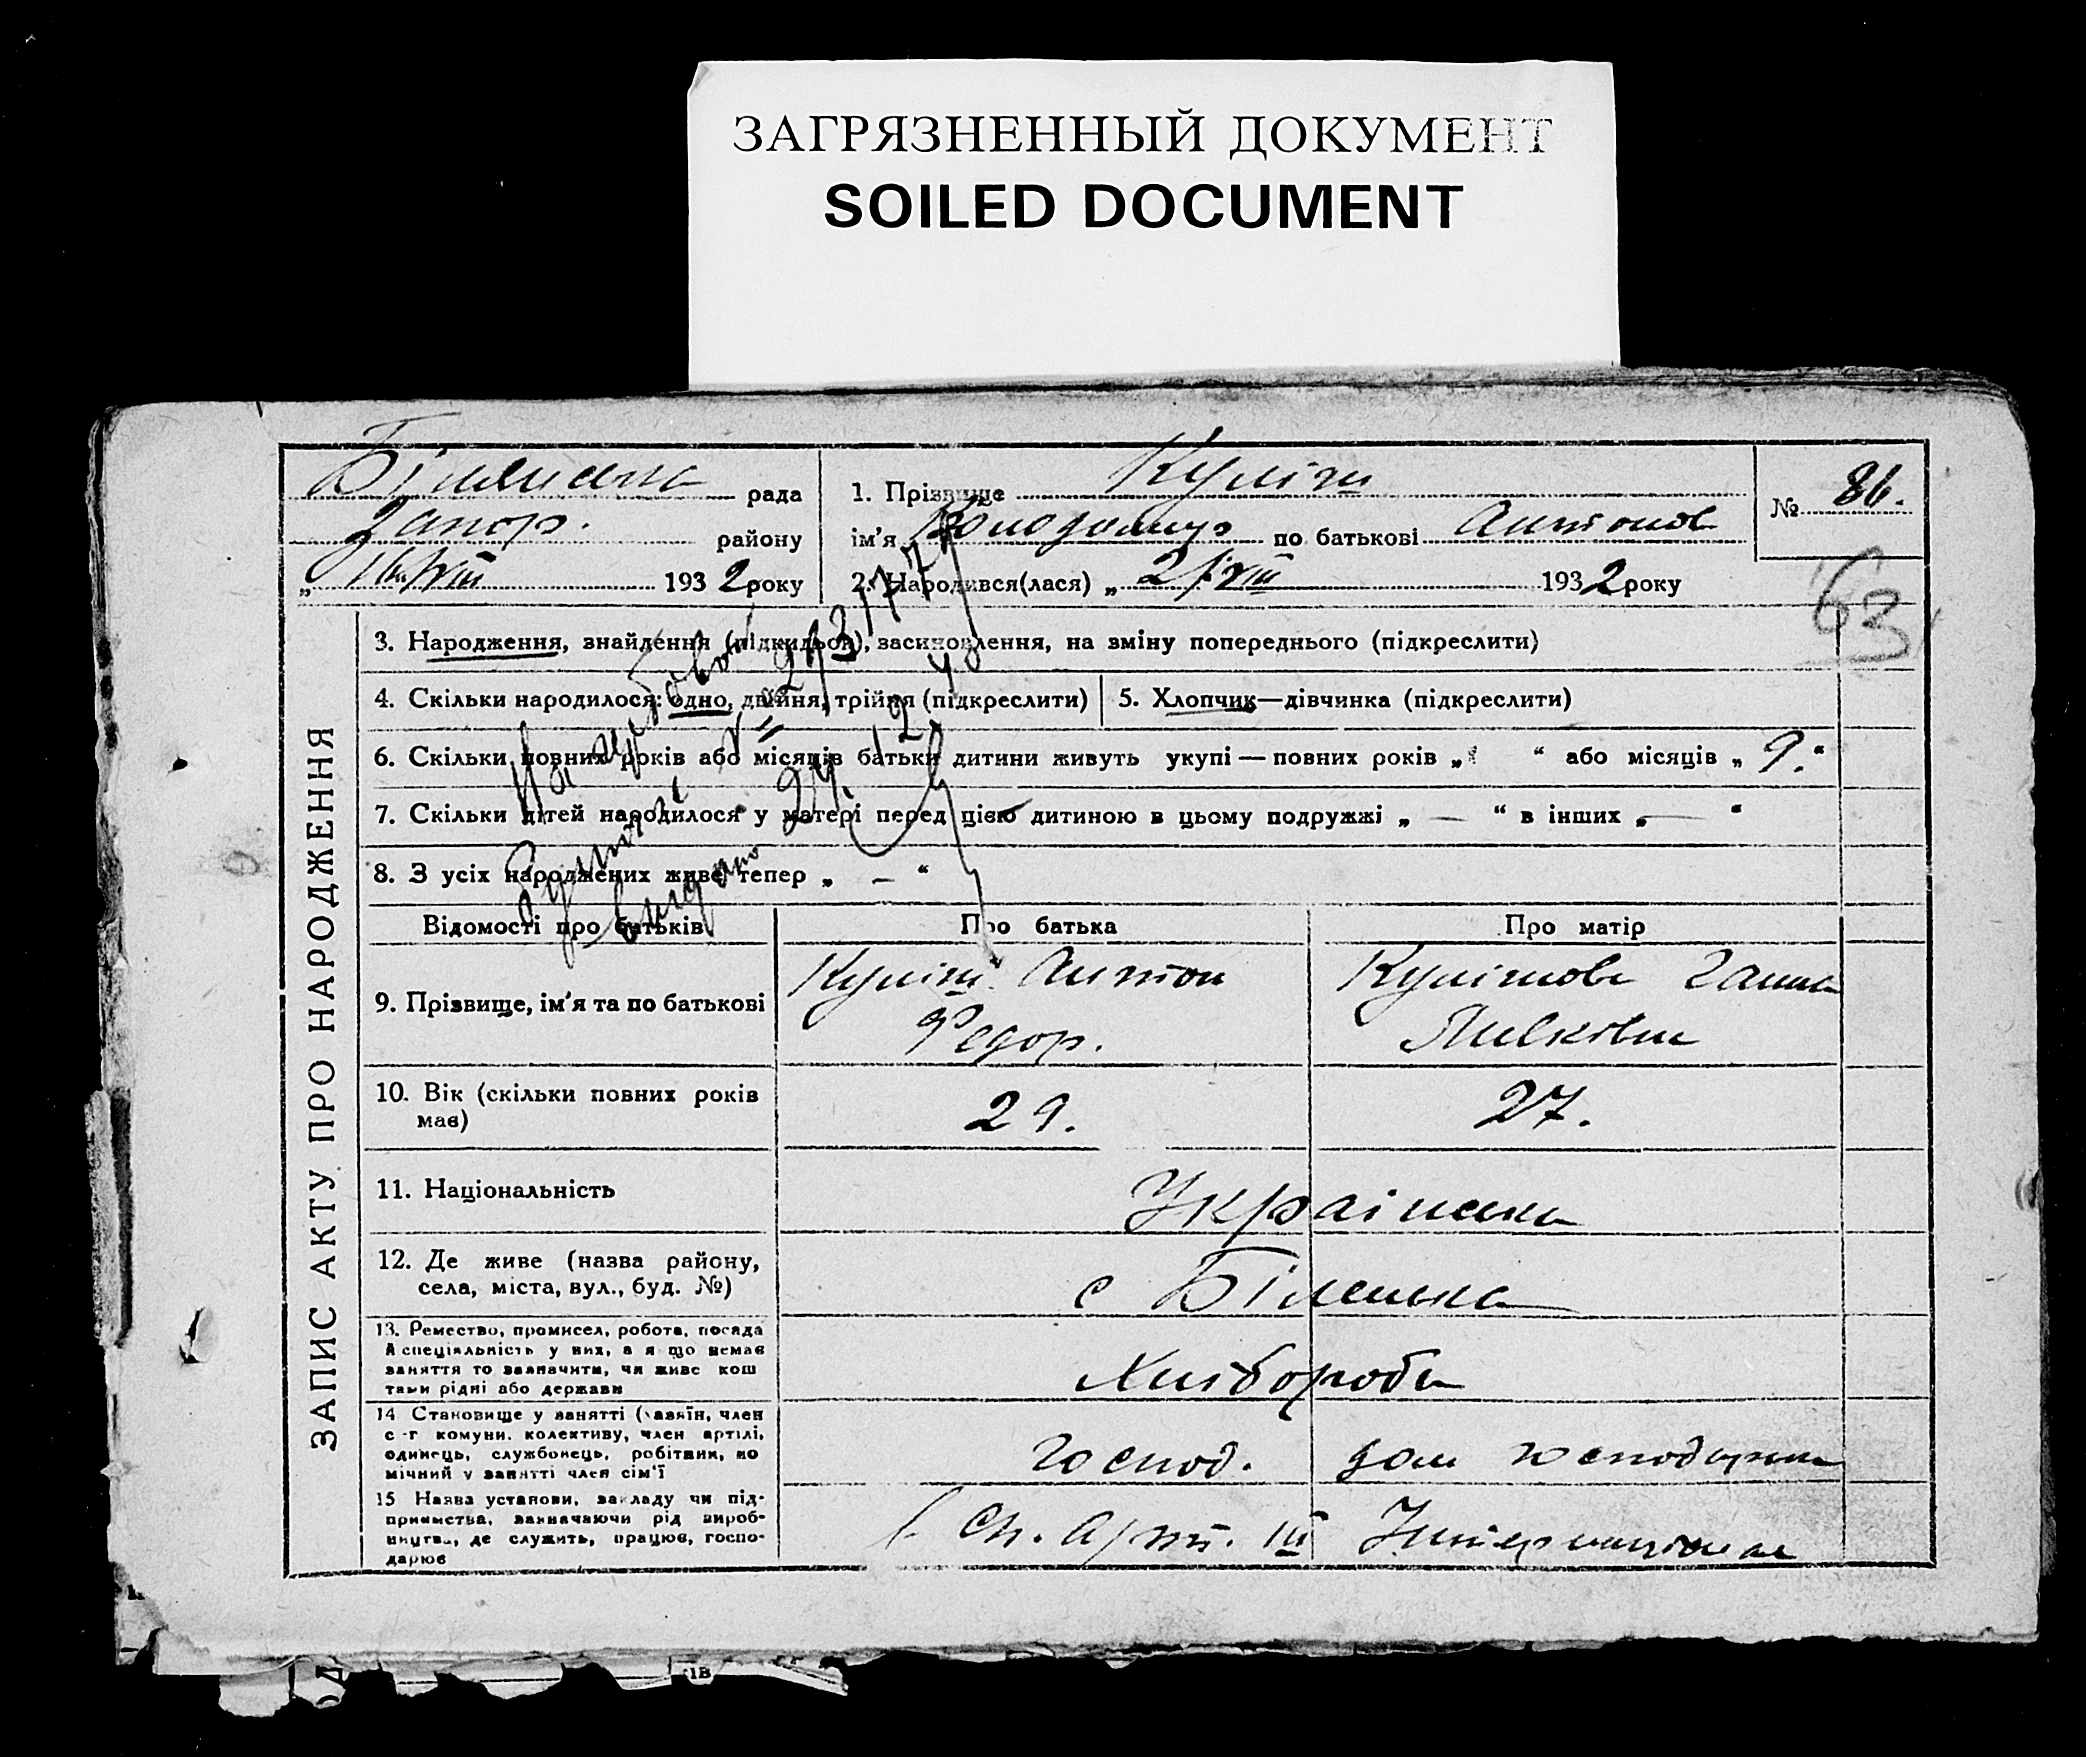 ЗАГРЯЗНЕННЫЙ ДОКУМЕНТ
SOILED DOCUMENT
рада
Запор. району
„ 16/VIII 1932 року
1. Прізвище Куліш
ім'я Володимир по батькові Антонов
2. Народився(лася) „ 2/VIII 1932 року
№ 86.
63
ЗАПИС АКТУ ПРО НАРОДЖЕННЯ
3. Народження, знайдення (підкидьок), засиновлення, на зміну попереднього (підкреслити)
4. Скільки народилося: одно, двійня, трійня (підкреслити)
5. Хлопчик—дівчинка (підкреслити)
6. Скільки повних років або місяців батьки дитини живуть укупі — повних років „ “ або місяців „ 9. “
7. Скільки дітей народилося у матері перед цією дитиною в цьому подружжі „ — “ в інших „ — “
8. З усіх народжених живе тепер „ — “
Відомості про батьків
Про батька
Про матір
9. Прізвище, ім'я та по батькові
Куліш Антон
Федор.
Кулішова Ганна
10. Вік (скільки повних років
має)
29.
27.
11. Національність
Українська
12. Де живе (назва району,
села, міста, вул., буд. №)
с Біленька
13. Ремество, промисел, робота, посада
й спеціяльність у них, а якщо немає
заняття то зазначити, чи живе кош
тами рідні або держави
Хлібороби
14 Становище у занятті (хазяїн, член
с-г комуни, колективу, член артілі,
одинець, службовець, робітник, по
мічний у занятті член сім'ї
господ.
дом господарка
15 Назва установи, закладу чи під-
приємства, зазначаючи рід вироб-
ництва, де служить, працює, госпо-
дарює
в с.г. арт. III Інтернаціонал